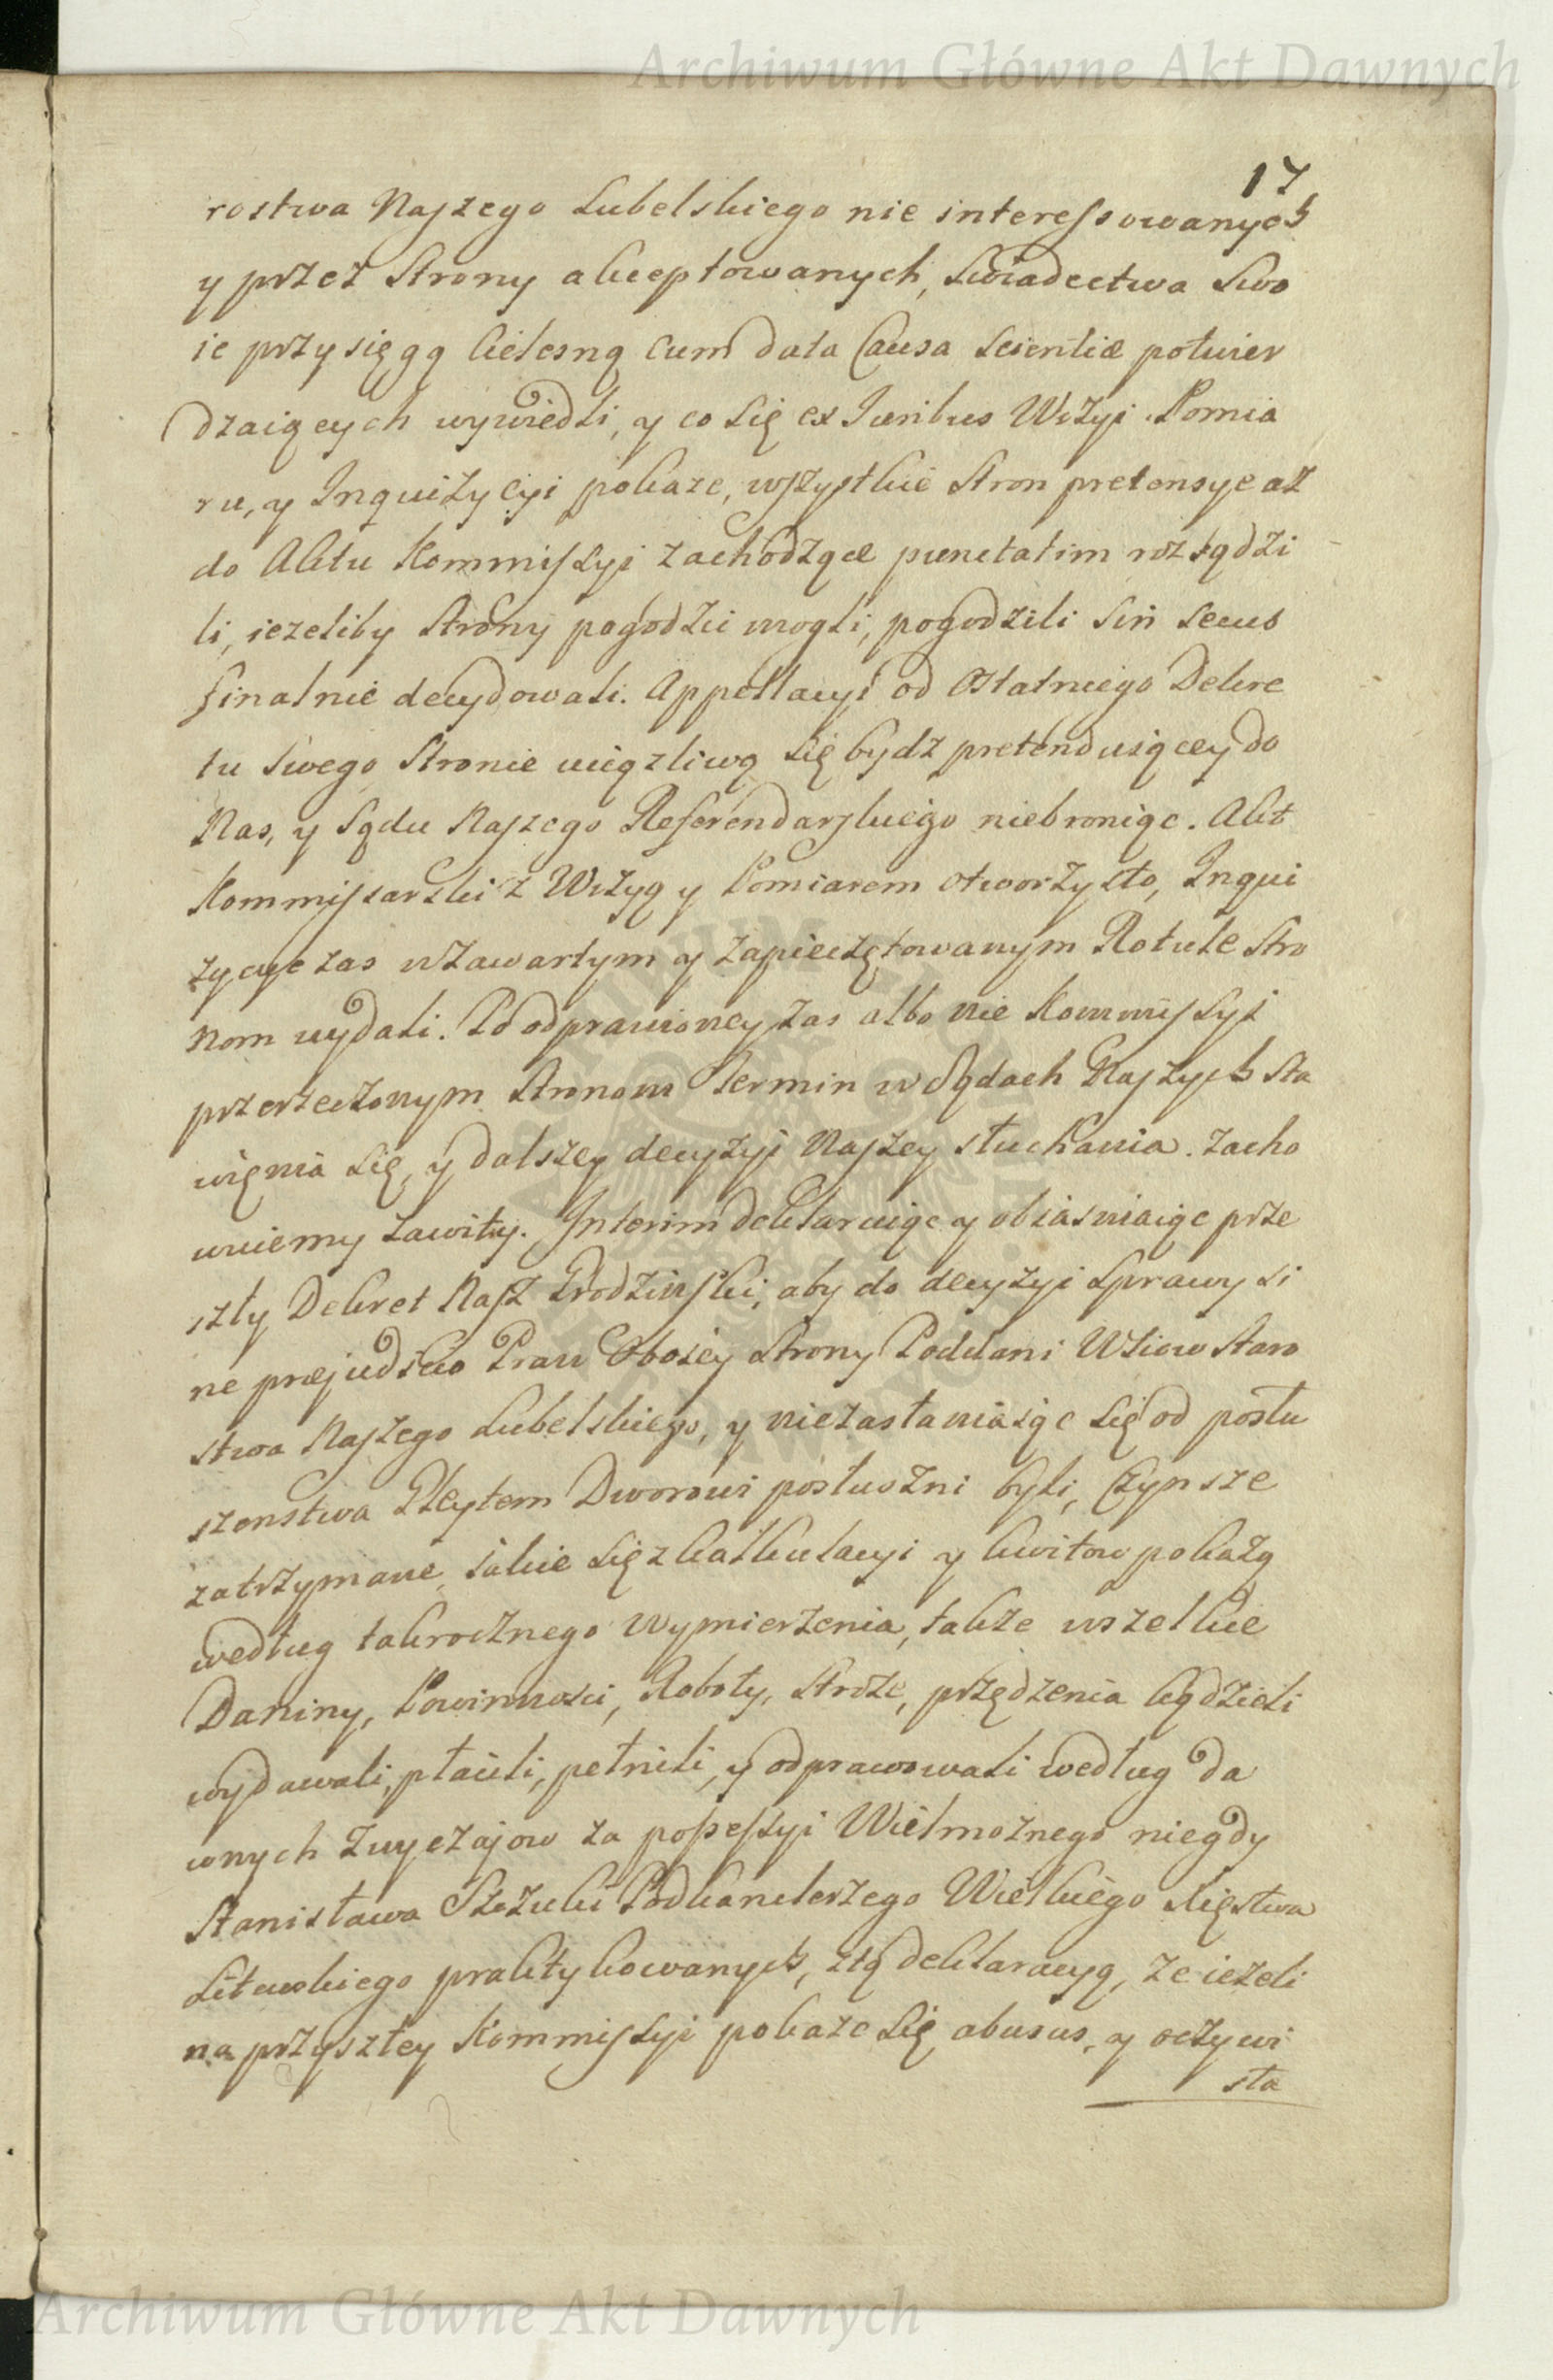 Archiwum Główne Akt Dawnych
17
rostwa Naszego Lubelskiego nie interessowanych
y przez Strony akceptowanych, Swiadectwa Swo
ie przysięgą Cielesną cum data Causa Scientiæ potwier
dzaiących wywiedli, y co Się ex Juribus Wizyi Pomia
ru, y Inquizycyi pokaze, wszystkie Stron pretensye az
do Aktu Kommissyi zachodzące punctatim rozsądzi
li, iezeliby Strony pogodzic mogli, pogodzili Sin Secus
finalnie decydowali. Appellacyi od Ostatniego Dekre
tu Swego Stronie uciązliwą Się bydz pretenduiącey do
Nas, y Sądu Naszego Referendarskiego niebroniąc. Akt
Kommissarski z Wizyą y Pomiarem otworzysto, Inqui
zycye zas w zawartym y zapieczętowanym Rotule Stro
nom wydali. Po odprawioney zas albo nie Kommissyi
przerzeczonym Stronom Termin w Sądach Naszych Sta
wienia Się, y dalszey decyzyi Naszey słuchania. zacho
wuiemy zawity. Interim deklaruiąc y obiasniaiąc prze
szły Dekret Nasz Grodzinski, aby do decyzyi Sprawy Si
ne præjudicio Praw Oboiey Strony Poddani Wsiow Staro
stwa Naszego Lubelskiego, y niezasłaniaiąc Się od posłu
szenstwa Gleytem Dworowi posłuszni byli, Czynsze
zatrzymane, iakie Się z kalkulacyi y kwitow pokażą
według takrocznego Wymierzenia, także wszelkie
Daniny, Powinnosci, Roboty, Stroże, przędzenia kądzieli
wydawali, płacili, pełnili, y odprawowali według da
wnych Zwyczajow za possessyi Wielmożnego niegdy
Stanisława Szczuki Podkanclerzego Wielkiego Xięstwa
Litewskiego praktykowanych, z tą deklaracyą, że ieżeli
na przyszłey Kommissyi pokaze Się abusus, y oczywi
sta
Archiwum Główne Akt Dawnych